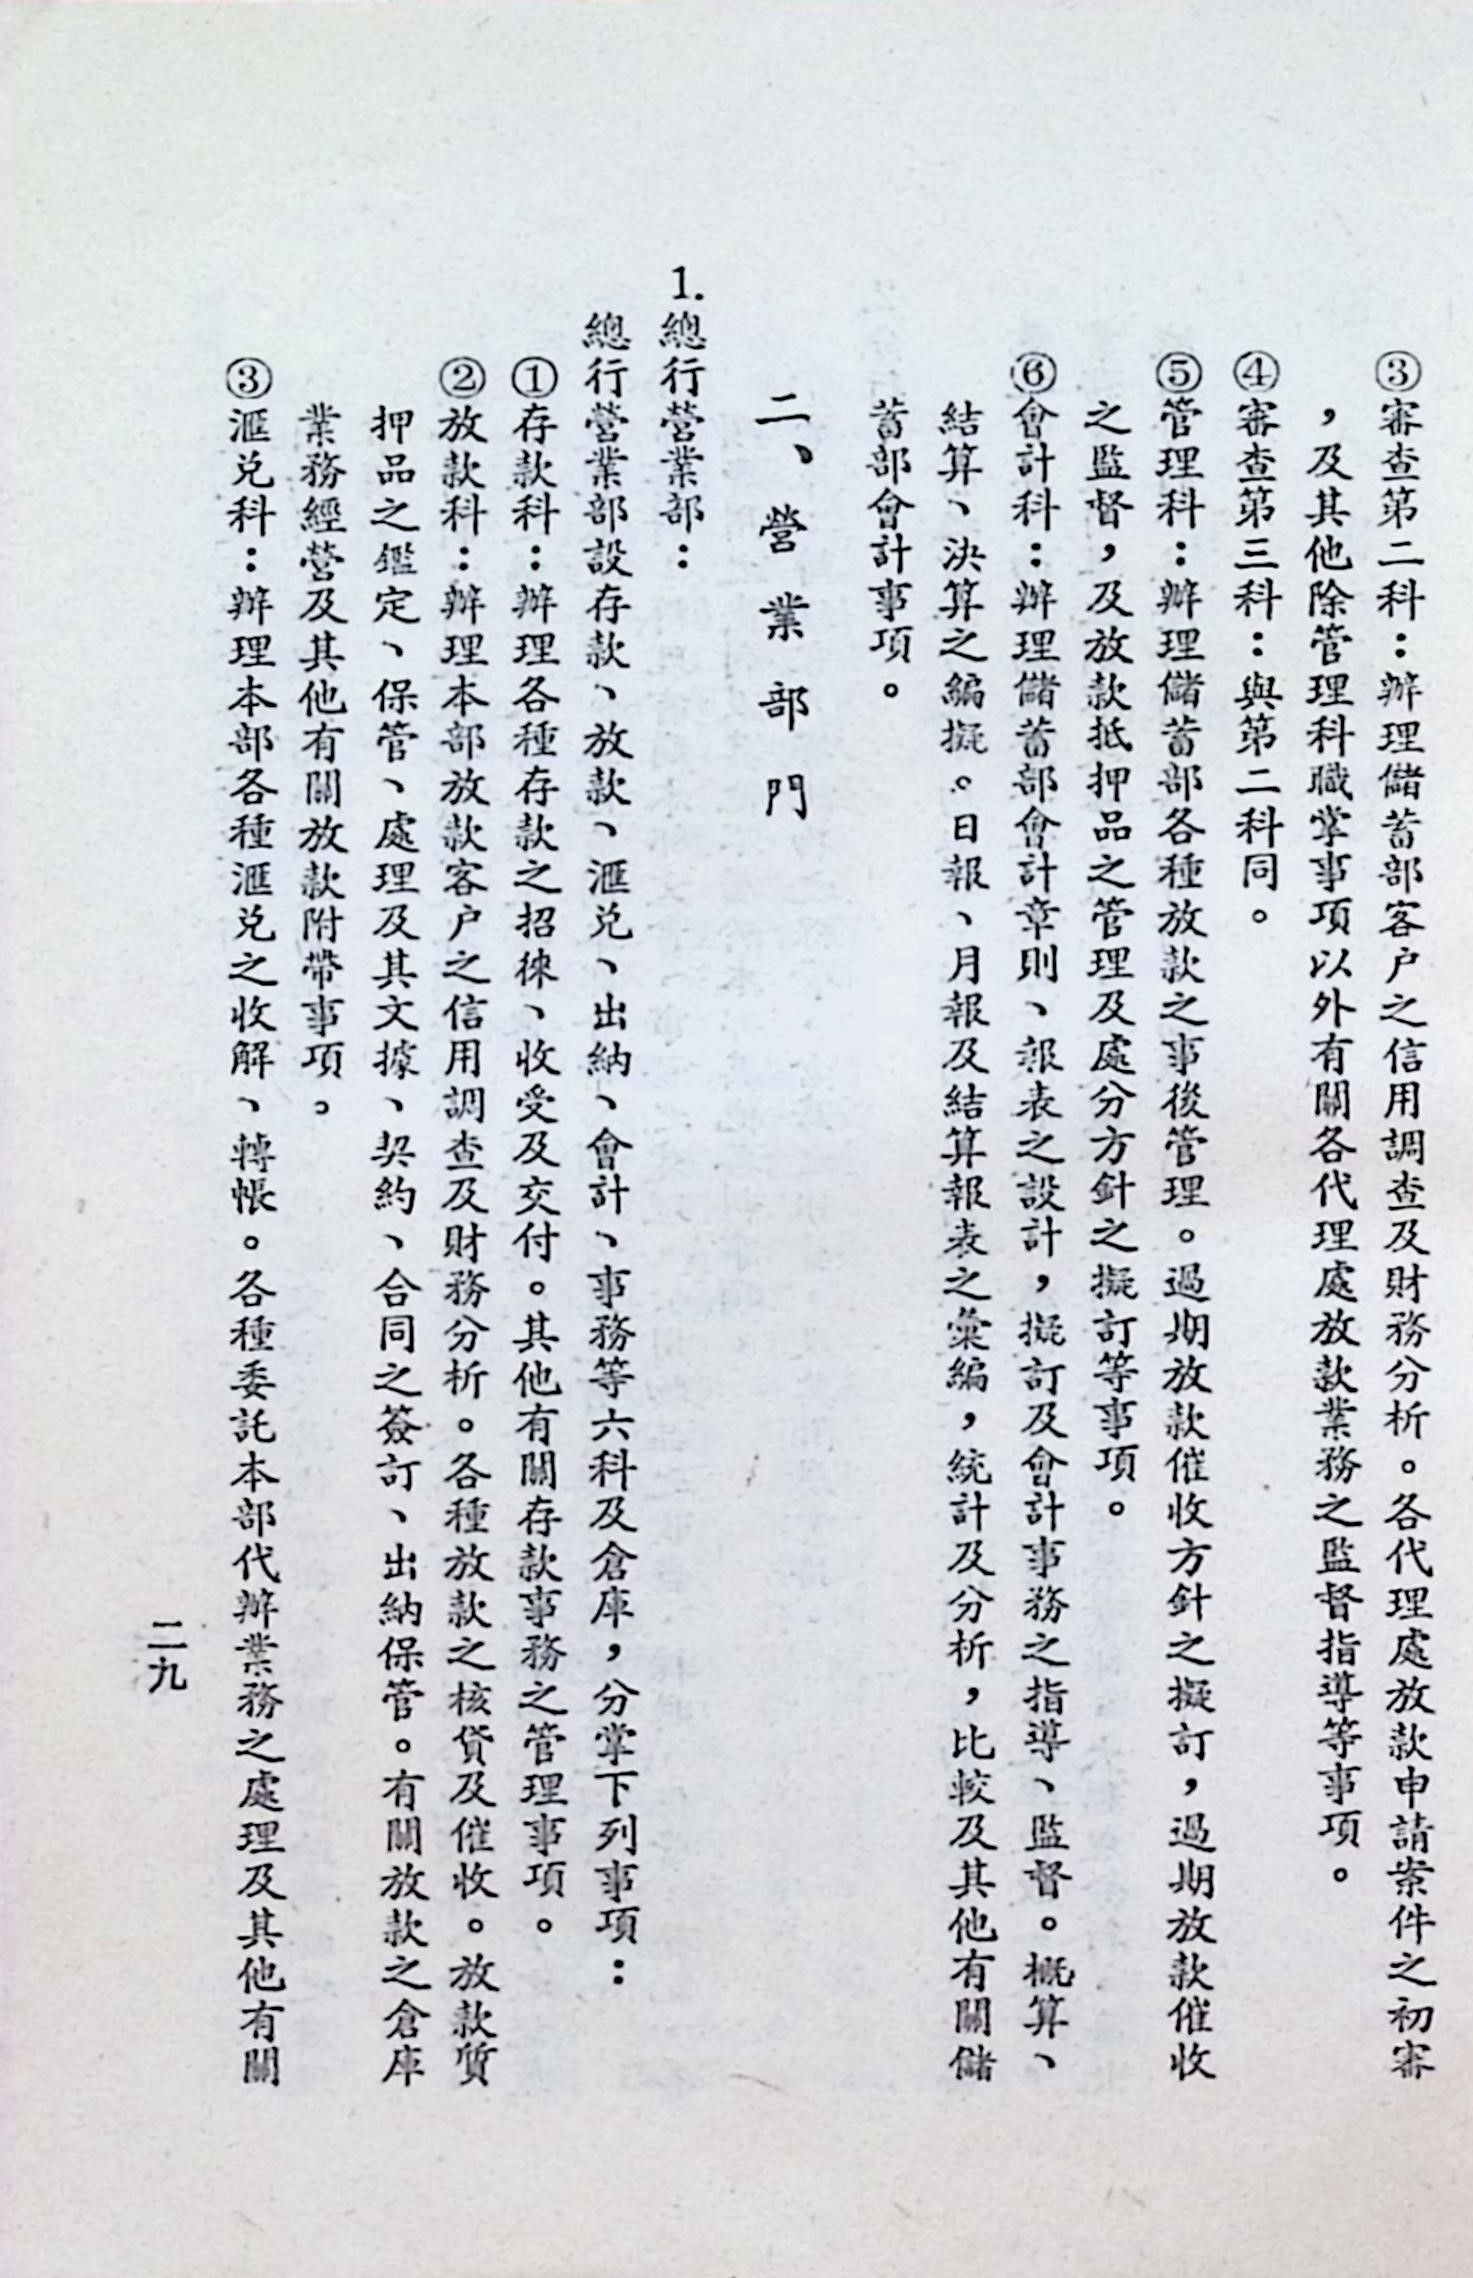 ③審查第二科：辦理儲蓄部客户之信用調查及財務分析。各代理處放款申請案件之初審
，及其他除管理科職掌事項以外有關各代理處放款業務之監督指導等事項。
④審查第三科：與第二科同。
⑤管理科：辦理儲蓄部各種放款之事後管理。過期放款催收方針之擬訂，過期放款催收
之監督，及放款抵押品之管理及處分方針之擬訂等事項。
⑥會計科：辦理儲蓄部會計章則、報表之設計，擬訂及會計事務之指導、監督。概算、
結算、決算之編擬。日報、月報及結算報表之彙編，統計及分析，比較及其他有關儲
蓄部會計事項。
二、營業部門
1.總行營業部：
總行營業部設存款、放款、滙兑、出納、會計、事務等六科及倉庫，分掌下列事項：
①存款科：辦理各種存款之招徠、收受及交付。其他有關存款事務之管理事項。
②放款科：辦理本部放款客户之信用調查及財務分析。各種放款之核貸及催收。放款質
押品之鑑定、保管、處理及其文據、契約、合同之簽訂、出納保管。有關放款之倉庫
業務經營及其他有關放款附帶事項。
③滙兑科：辦理本部各種滙兑之收解、轉帳。各種委託本部代辦業務之處理及其他有關
二九